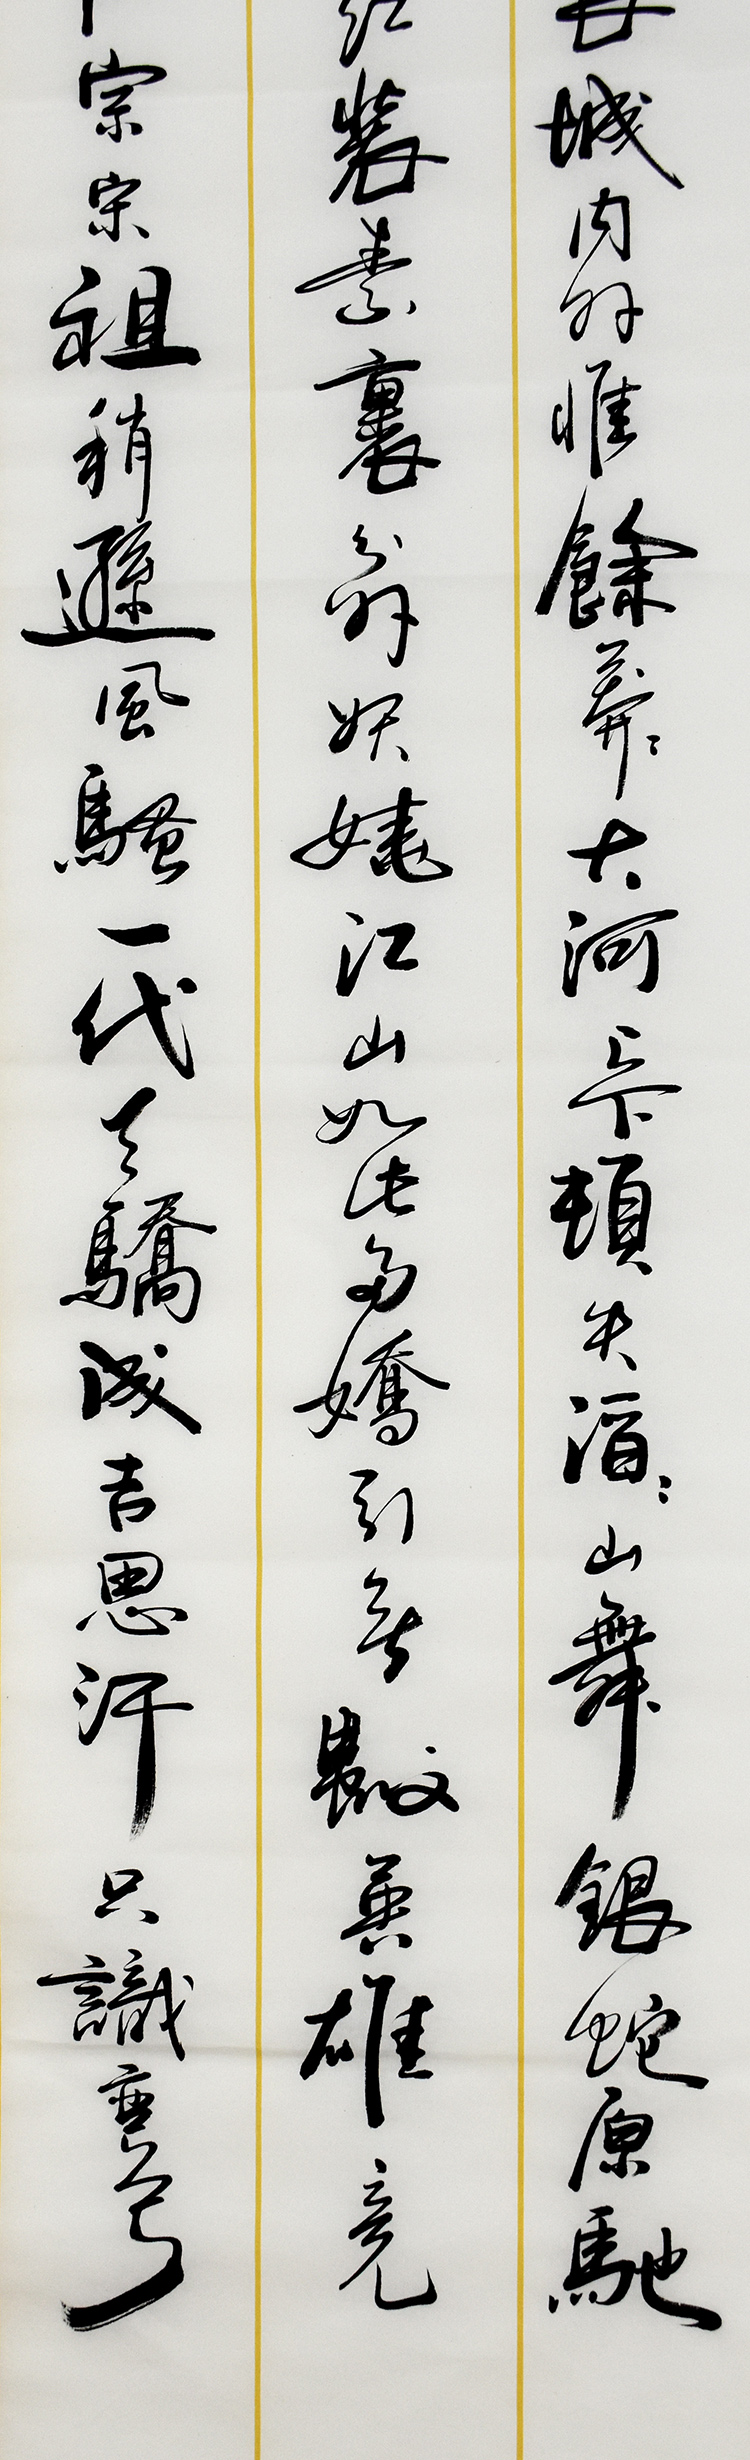 城內外惟餘莽〻大河上下頓失滔〻山舞銀蛇原馳
紅裝素裹分外妖嬈江山如此多嬌引無數英雄竞
宗宋祖稍遜風騷一代天驕成吉思汗只識彎弓